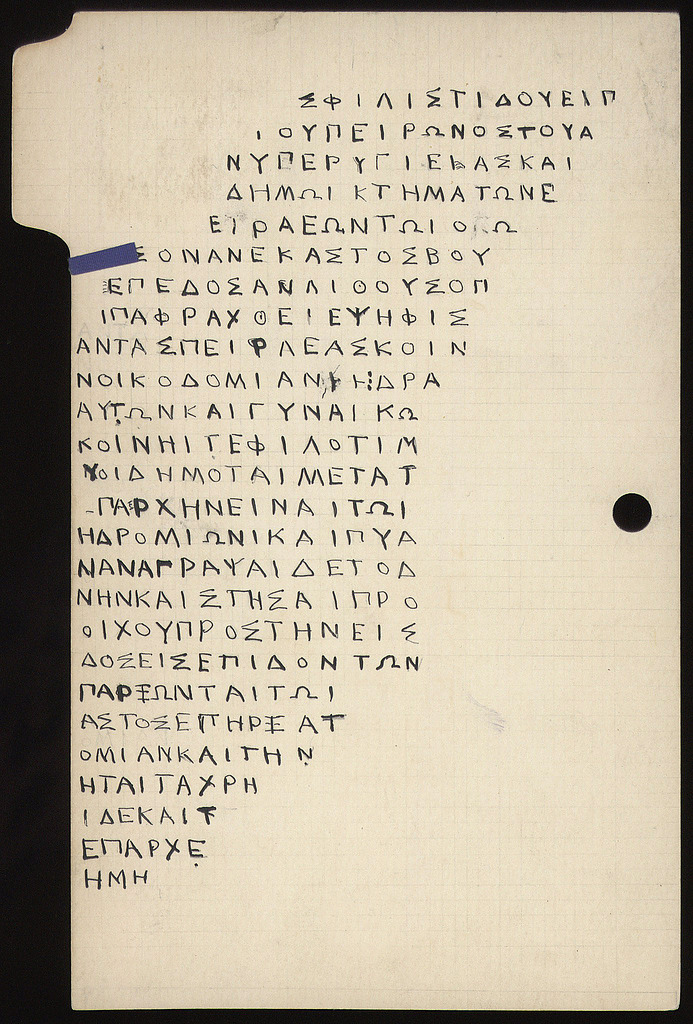 ΣΦΙΛΙΣΤΙΔΟΥΕΙΠ
ΙΟΥΠΕΙΡΩΝΟΣΤΟΥΑ
ΝΥΠΕΡΥΓΙΕΑΣΚΑΙ
ΔΗΜΩΙΚΤΗΜΑΤΩΝΕ
ΕΙΡΑΕΩΝΤΩΙΟΩ
ΣΟΝΑΝΕΚΑΣΤΟΣΒΟΥ
ΕΠΕΔΟΣΑΝΛΙΘΟΥΣΟΠ
ΙΠΑΦΡΑΧΘΕΙΕΨΗΦΙΣ
ΑΝΤΑΣΠΕΙΡΛΕΑΣΚΟΙΝ
ΝΟΙΚΟΔΟΜΙΑΝΚΗΔΡΑ
ΑΥΤΩΝΚΑΙΓΥΝΑΙΚΩ
ΚΟΙΝΗΙΓΕΦΙΛΟΤΙΜ
ΝΟΙΔΗΜΟΤΑΙΜΕΤΑΤ
ΠΑΡΧΗΝΕΙΝΑΙΤΩΙ
ΗΔΡΟΜΙΩΝΙΚΑΙΠΥΑ
ΝΑΝΑΓΡΑΨΑΙΔΕΤΟΔ
ΝΗΝΚΑΙΣΤΗΣΑΙΠΡΟ
ΟΙΧΟΥΠΡΟΣΤΗΝΕΙΣ
ΔΟΣΕΙΣΕΠΙΔΟΝΤΩΝ
ΠΑΡΞΩΝΤΑΙΤΩΙ
ΑΣΤΟΣΕΠΗΡΞΑΤ
ΟΜΙΑΝΚΑΙΤΗΝ
ΗΤΑΙΤΑΧΡΗ
ΙΔΕΚΑΙΤ
ΕΠΑΡΧΕ
ΗΜΗ